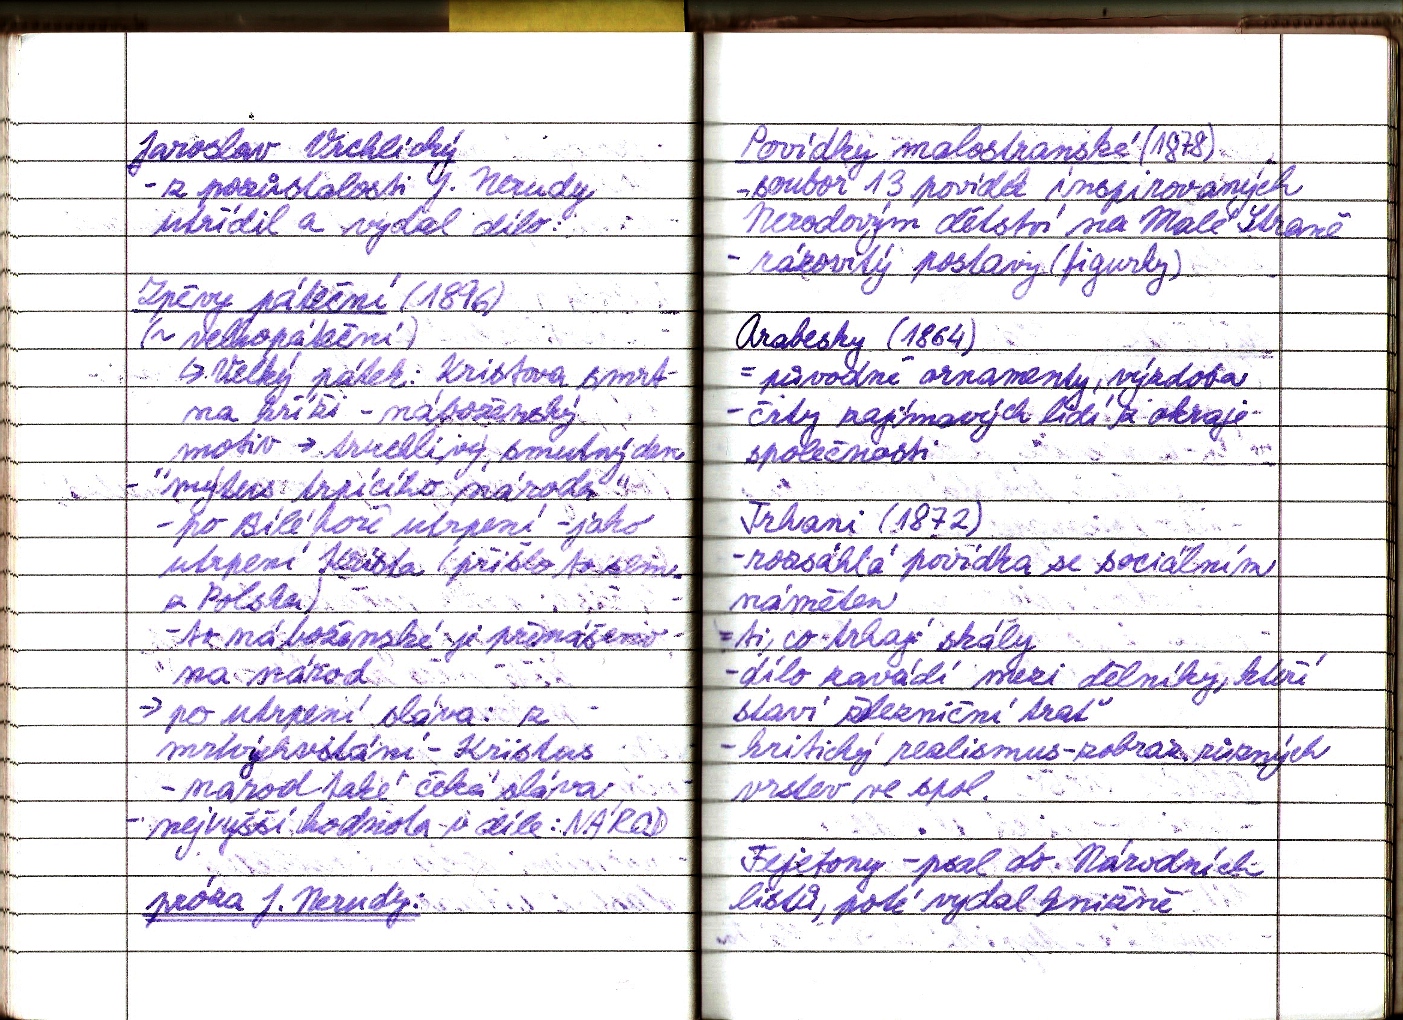 Jaroslav Vrchlický
- z pozůstalosti J. Nerudy
utřídil a vydal dílo:
Zpěvy páteční (1896)
(~ velkopáteční)
↳ Velký pátek: Kristova smrt
na kříži - náboženský
motiv → truchlivý, smutný den
- "mýtus trpícího národa"
- po Bílé hoře utrpení - jako
utrpení Krista (přišlo to sem
z Polska)
- to náboženské je přenášeno
na národ
→ po utrpení sláva: z
mrtvýchvstání - Kristus
- národ také čeká sláva
- nejvyšší hodnota v díle: NÁROD
próza J. Nerudy:
Povídky malostranské (1878)
- soubor 13 povídek inspirovaných
Nerodovým dětství na Malé Straně
- rázovitý postavy (figurky)
Arabesky (1864)
= původně ornamenty, výzdoba
- črty zajímavých lidí z okraje
společnosti
Trhani (1872)
- rozsáhlá povídka se sociálním
námětem
= ti, co trhají skály
- dílo zavádí mezi dělníky, kteří
staví železniční trať
- kritický realismus - zobraz. různých
vrstev ve spol.
Fejetony - psal do Národních
listů, poté vydal knižně